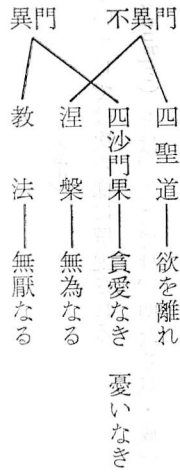 不異門
異門
四聖道――欲を離れ
四沙門果――貪愛なき 憂いなき
涅槃――無為なる
教法――無厭なる